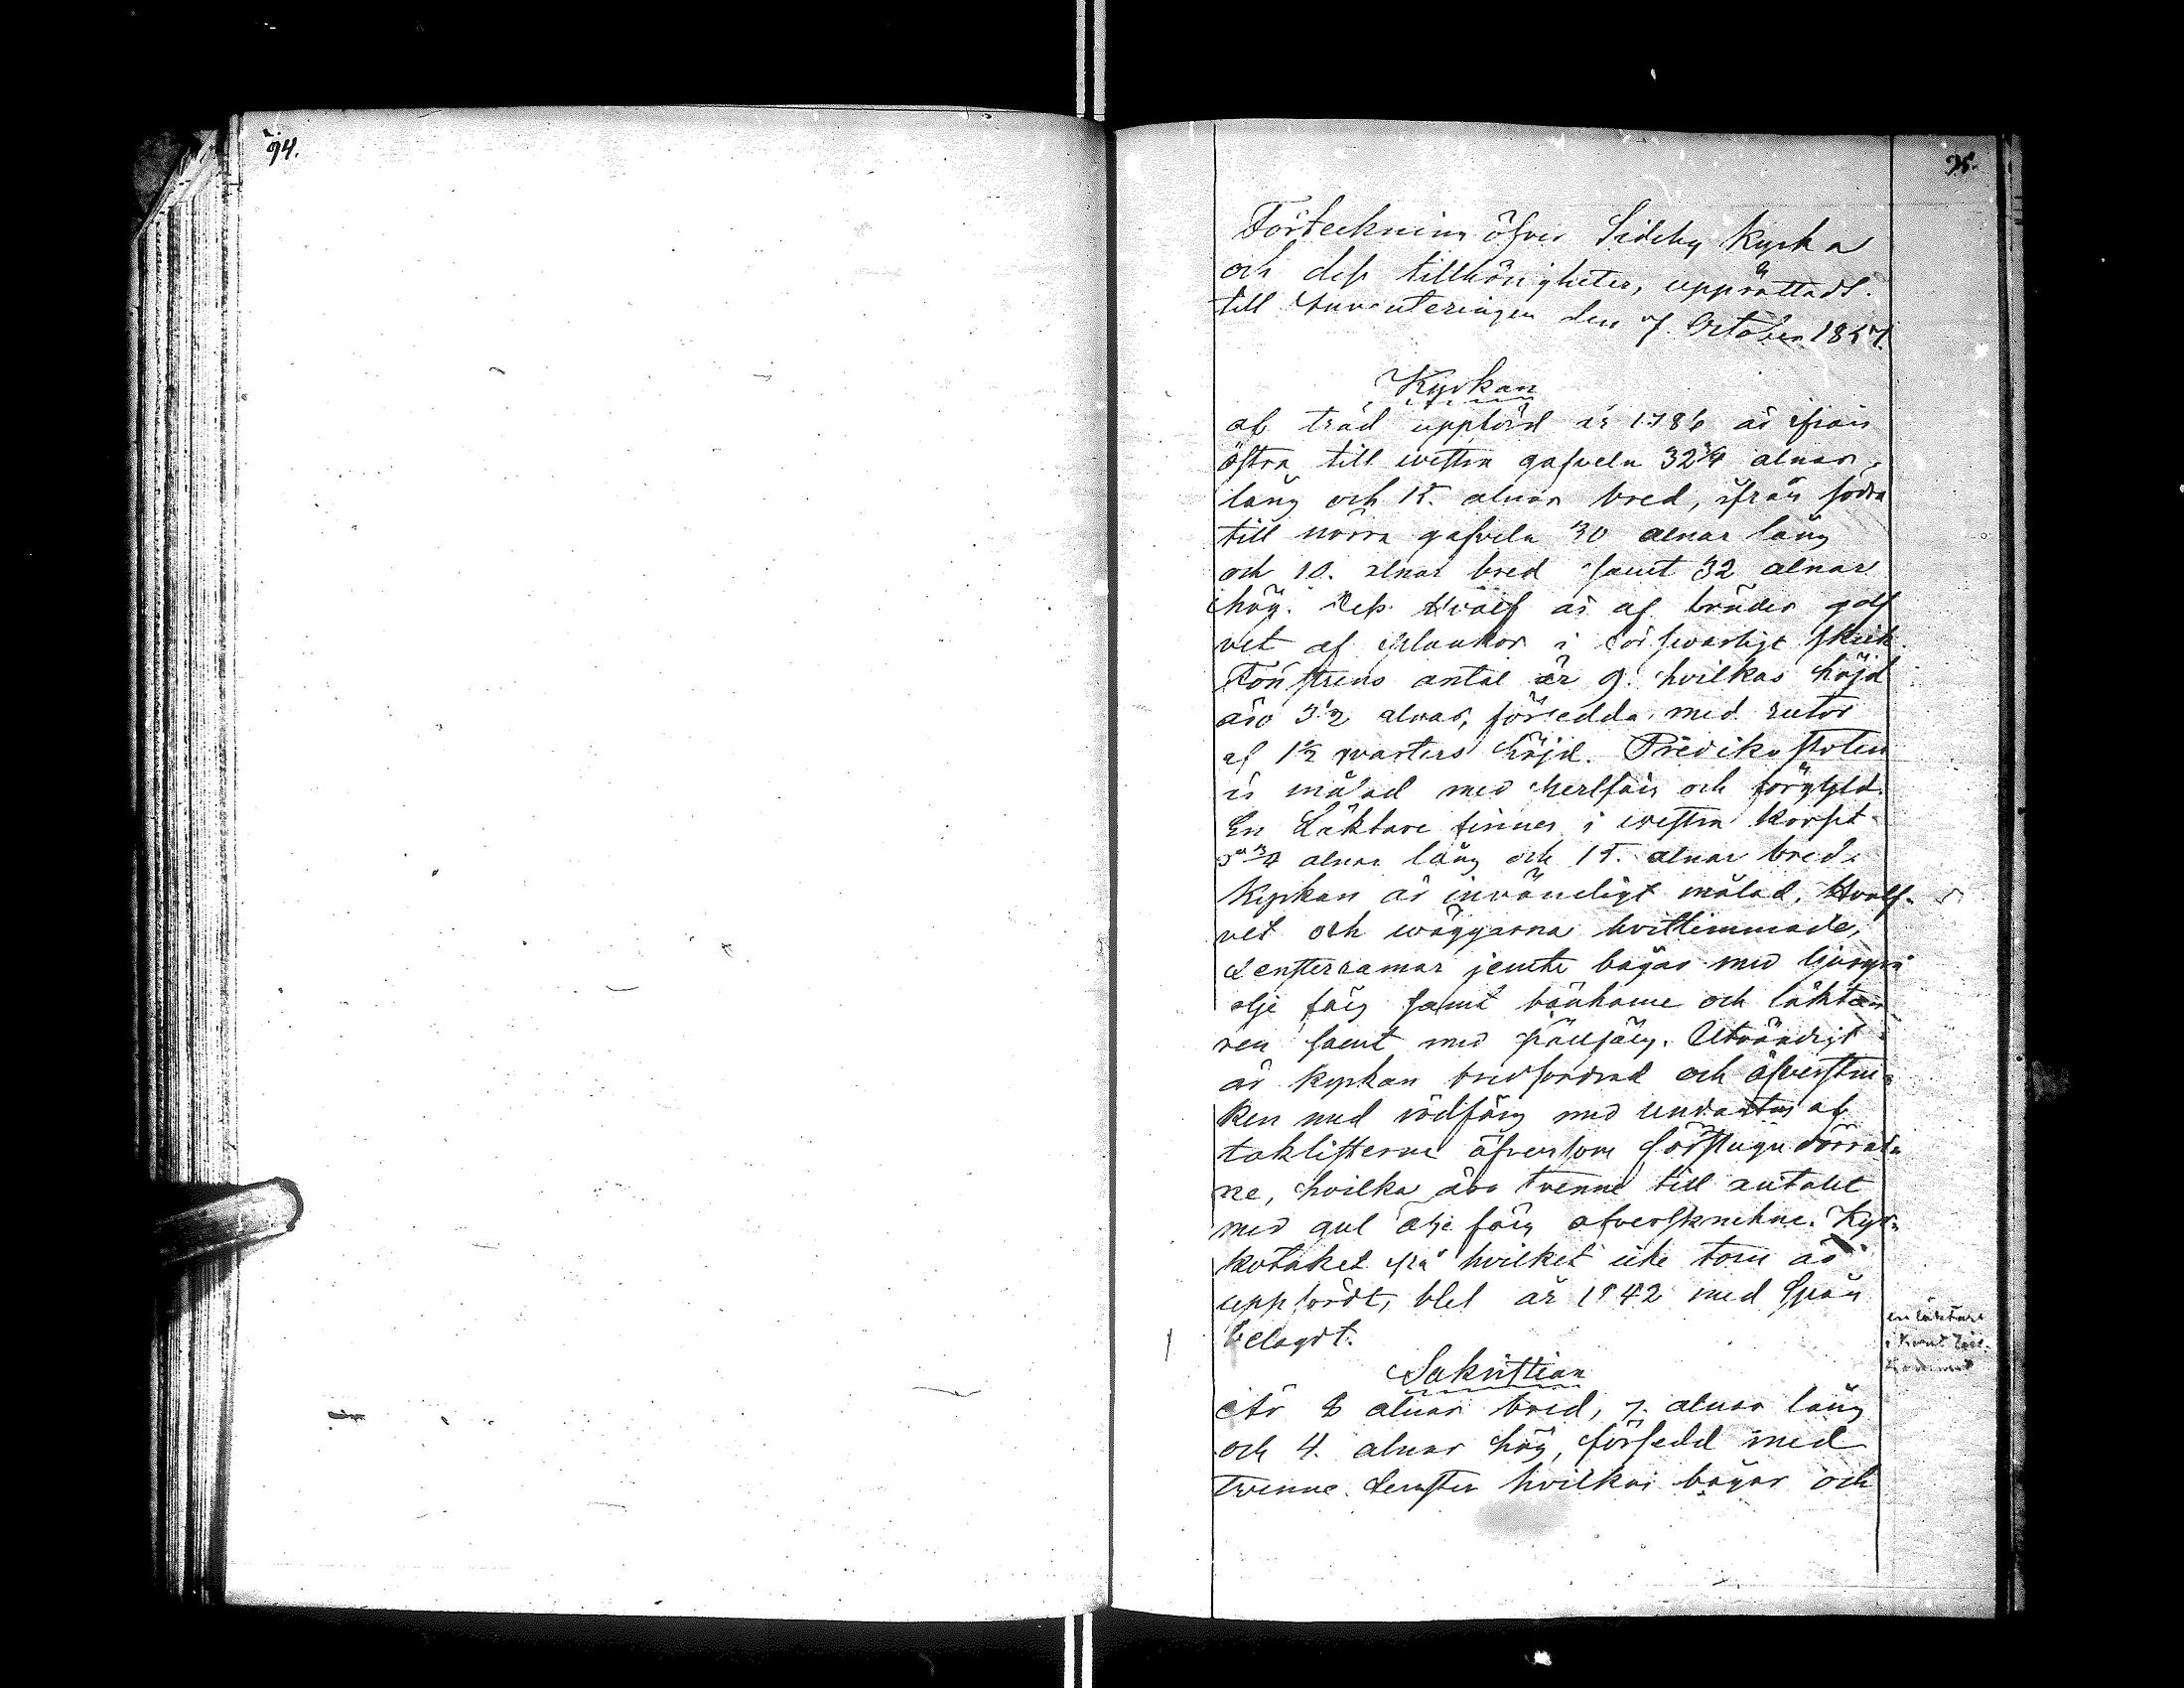 94.
95.
Förteckning öfver Sideby Kyrka
och dess tillhörigheter, upprättadt
till Inventeringen den 7. October 1857.
Kyrkan
af träd uppförd år 1786 är ifrån
östra till westra gafveln 32 3/4 alnar
lång och 15. alnar bred, ifrån södra
till norra gafveln 30 alnar lång
och 10. alnar bred samt 32 alnar
hög. Dess Hvalf är af bräder golf
vet af plankor i försvarligt skick.
Fönstrens antal är 9. hvilkas höjd
äro 3 1/2 alnar, försedda med rutor
af 1 1/2 qvarters höjd. Predikostolen
är målad med perlfärg och förgyld.
En Läktare finnes i westra korset
3/4 alnar lång och 15. alnar bred.
Kyrkan är invändigt målad, Hvalf-
vet och wäggarna hvitlimmade,
Fensterramar jemte bågar med ljusgrå
olje färg samt bänkarne och läkta-
ren samt med perlfärg. Utvändigt
är kyrkan brädfordrad och öfverstru-
ken med rödfärg med undantag af
taklisterne äfvensom förstugudörrar-
ne, hvilka äro trenne till antalet
med gul olje färg öfverstrukne. Kyr-
kotaket på hvilket ett torn är
uppfördt, blef år 1842 med spån
belagdt.
en läktare
Sakristian
Är 8 alnar bred, 7. alnar lång
och 4. alnar hög, försedd med
twenne Fenster hvilkas bågar och